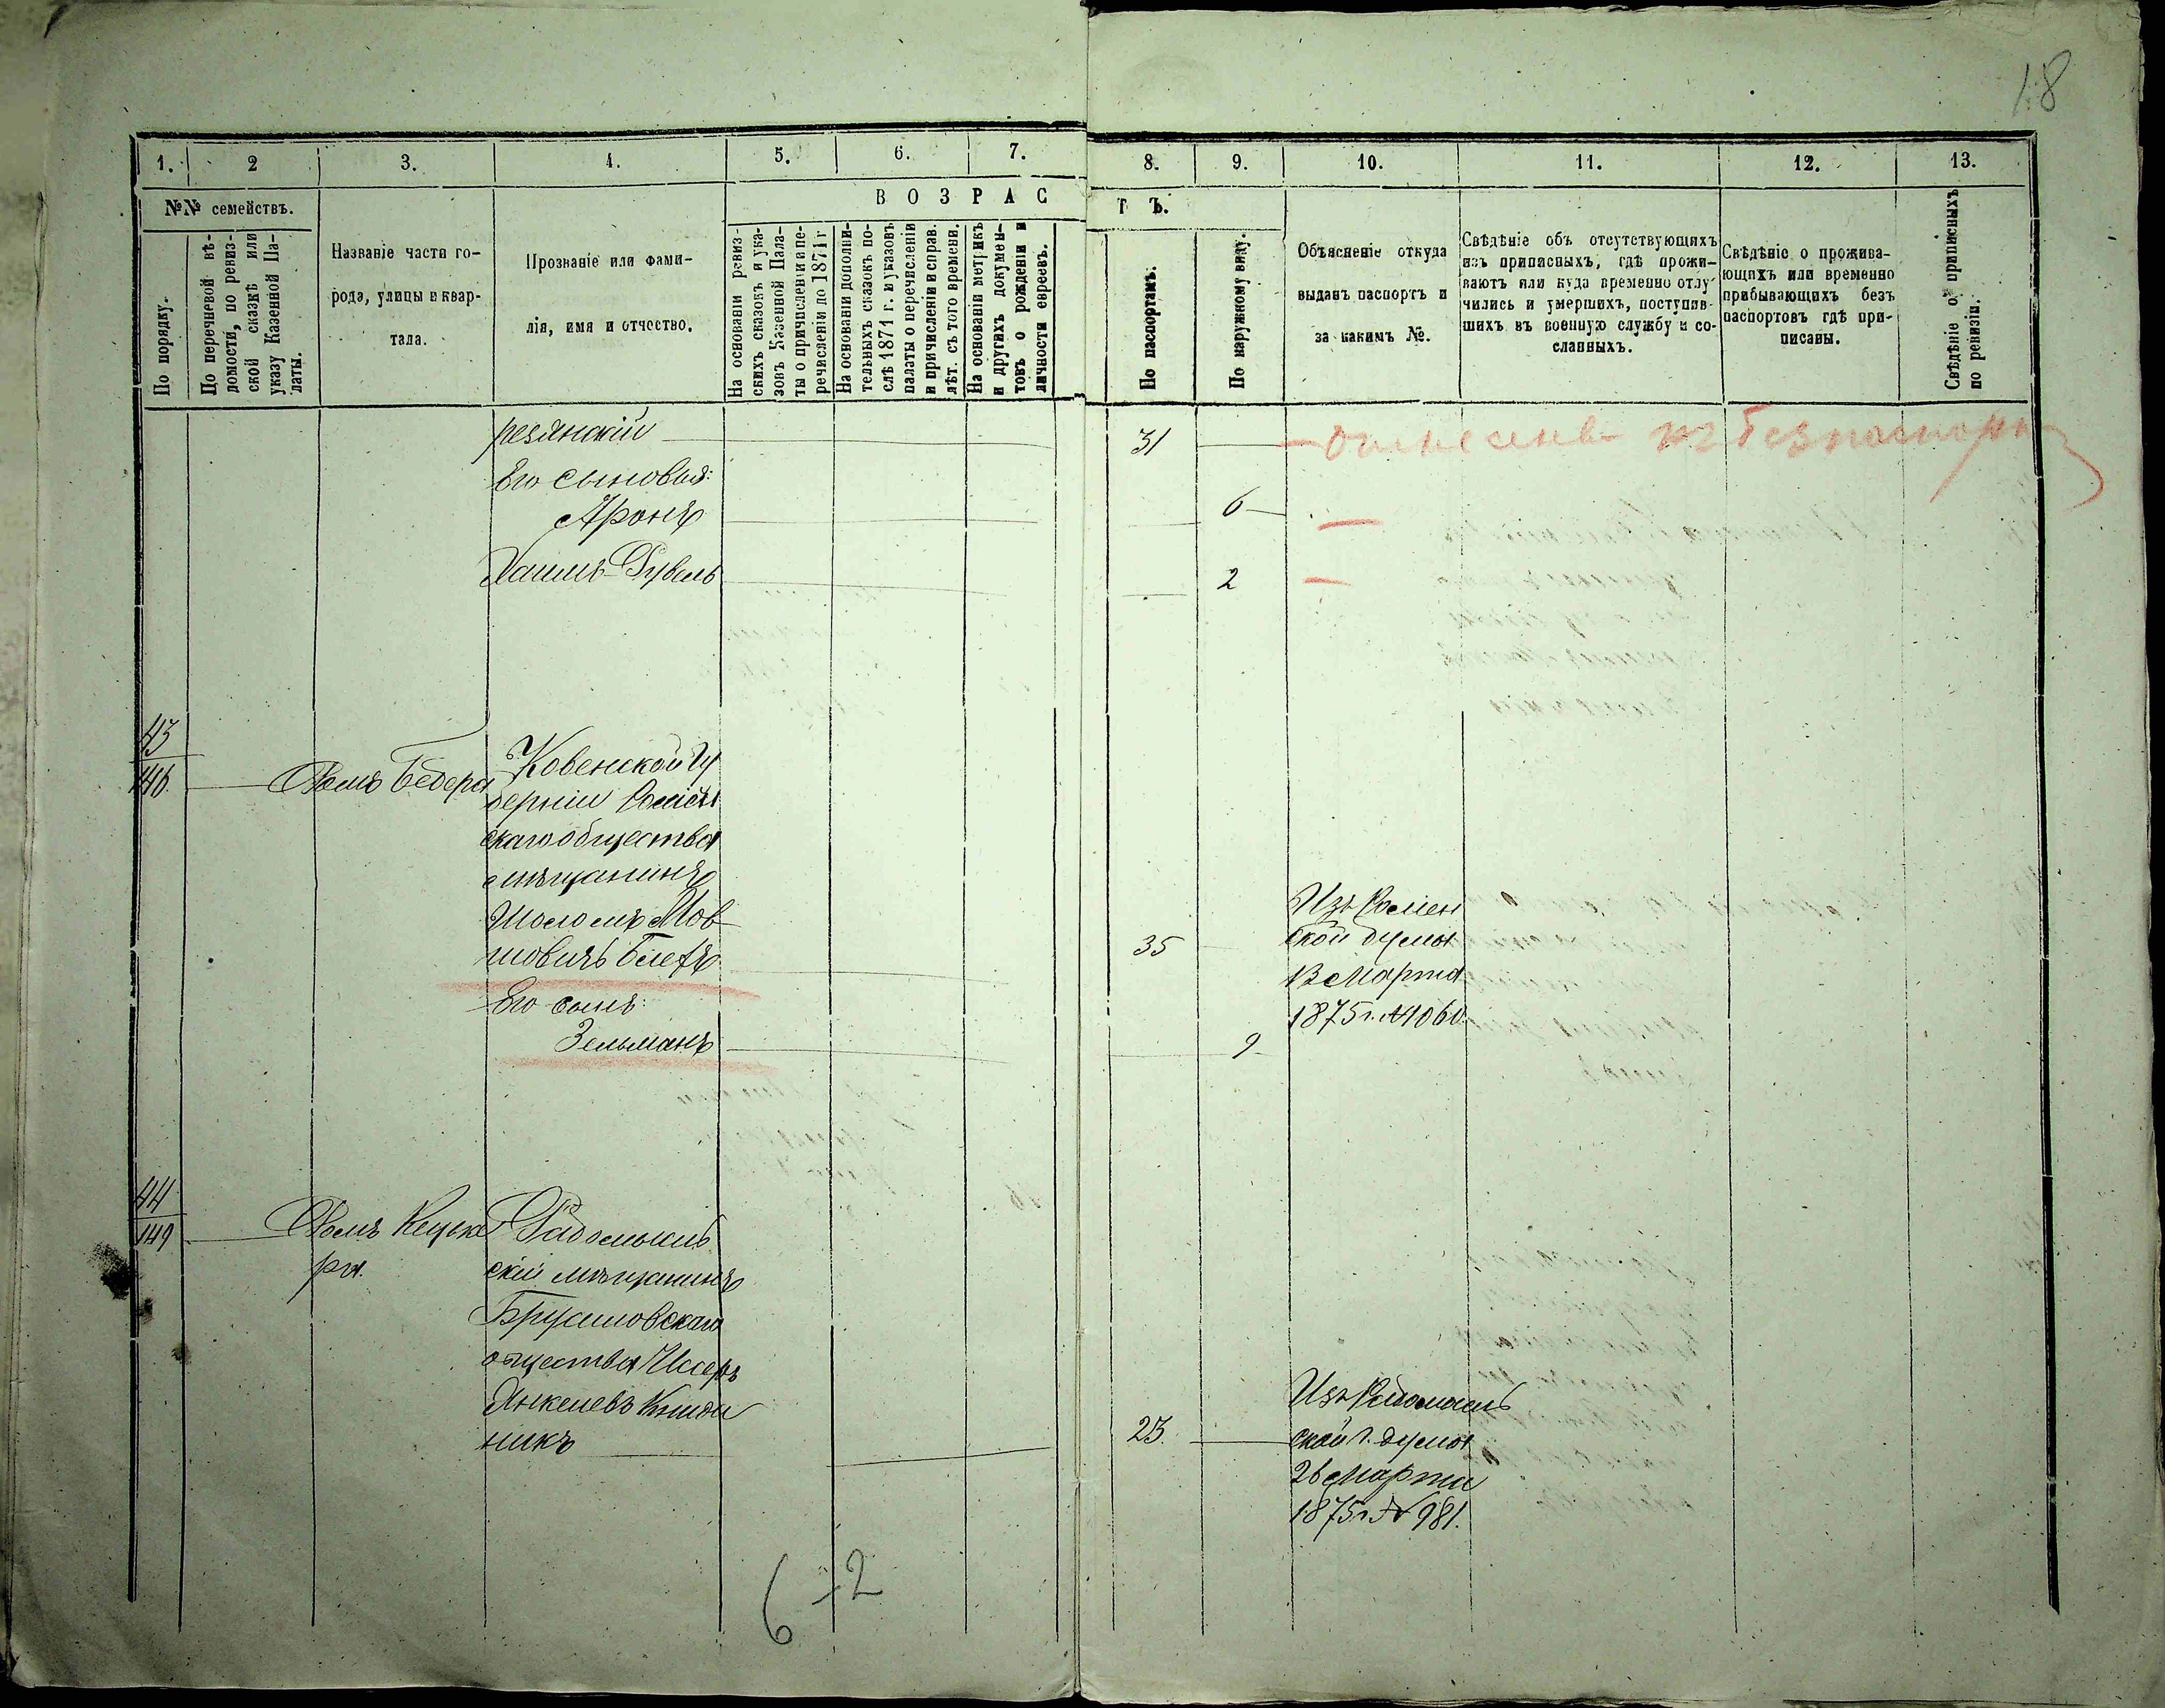 18
1. 2 3. 4. 5. 6. 7. 8. 9. 10. 11. 12. 13.
№№ семействъ.
По порядку.
По перечневой вѣ-
домости, по ревиз-
ской сказкѣ или
указу Казенной Па-
латы.
Названіе части го-
рода, улицы и квар-
тала.
Прозваніе или фами-
лія, имя и отчество.
ВОЗРАСТЪ.
На основаніи ревиз-
скихъ сказокъ и ука-
зовъ Казенной Пала-
ты о причисленіи и пе-
речисленіи до 1871г
На основаніи дополни-
тельныхъ сказокъ по-
слѣ 1871 г. и указовъ
палаты о перечисленіи
и причисленіи и справ.
лѣт. съ того времени.
На основаніи метрикъ
и другихъ докумен-
товъ о рожденіи и
личности евреевъ.
По паспортамъ.
По наружному виду.
Объясненіе откуда
выданъ паспортъ и
за какимъ №.
Свѣдѣніе объ отсутствующихъ
изъ приписныхъ, гдѣ прожи-
ваютъ или куда временно отлу
чились и умершихъ, поступив-
шихъ въ военную службу и со-
сланныхъ.
Свѣдѣніе о прожива-
ющихъ или временно
прибывающихъ безъ
паспортовъ гдѣ при-
писаны.
Свѣдѣніе о приписныхъ
по ревизіи.
резанскій 31
Его сыновья:
Аронъ 6
Хаимъ-Рувель 2
43
146 Домъ Бедера Ковенской Гу
берніи
скаго общества
мѣщанинъ
Шоломъ Мов
шовичъ 35
Его сынъ:
Зельманъ 9
Изъ
ской думы
13 Марта
1875 г. № 1060.
44
149
ра.
скій мѣщанинъ
Брусиловскаго
общества
Янкелевъ
никъ 23.
Изъ Радомысль
ской г. думы
26 Марта
1875 г. № 981.
6-2